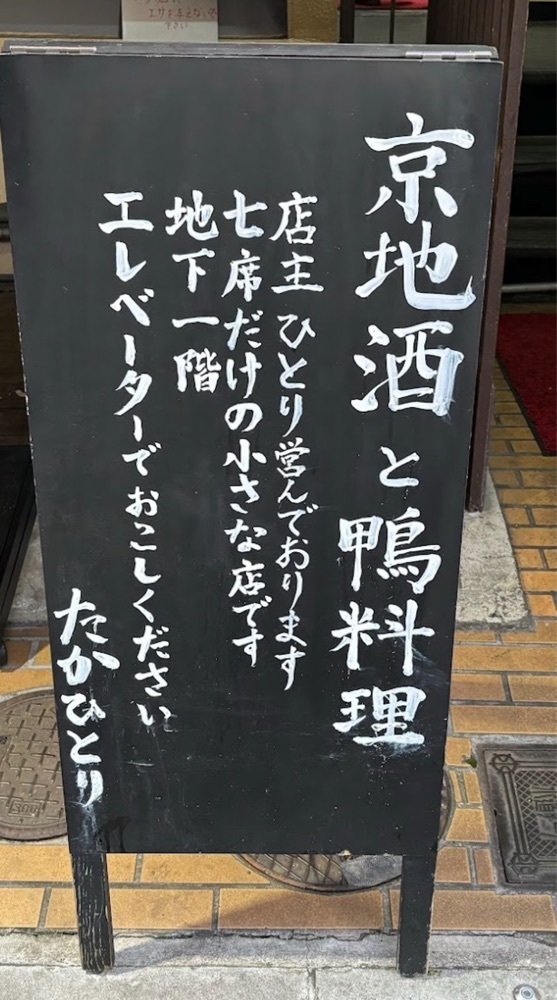 京地酒と鴨料理
店主ひとり営んでおります
七席だけの小さな店です
地下一階
エレベーターでおこしください
たかひとり
エサを与えないで
下さい